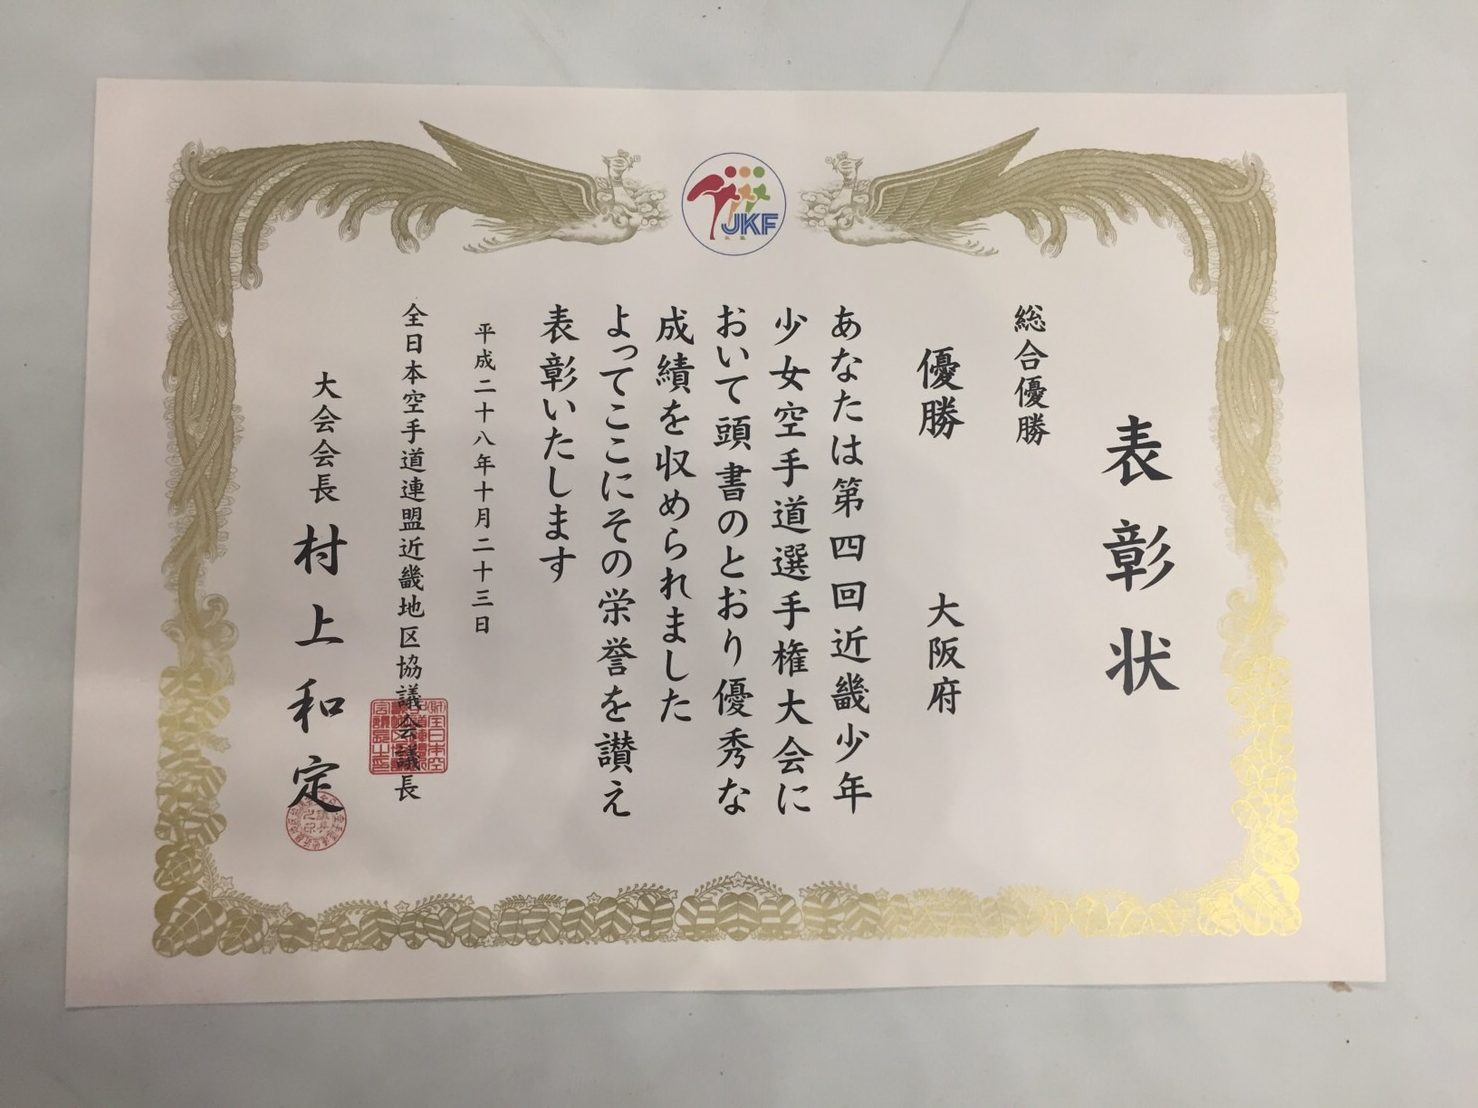 JKF
表彰状
総合優勝
優勝 大阪府
あなたは第四回近畿少年
少女空手道選手権大会に
おいて頭書のとおり優秀な
成績を収められました
よってここにその栄誉を讃え
表彰いたします
平成二十八年十月二十三日
全日本空手道連盟近畿地区協議会議長
大会会長 村上和定